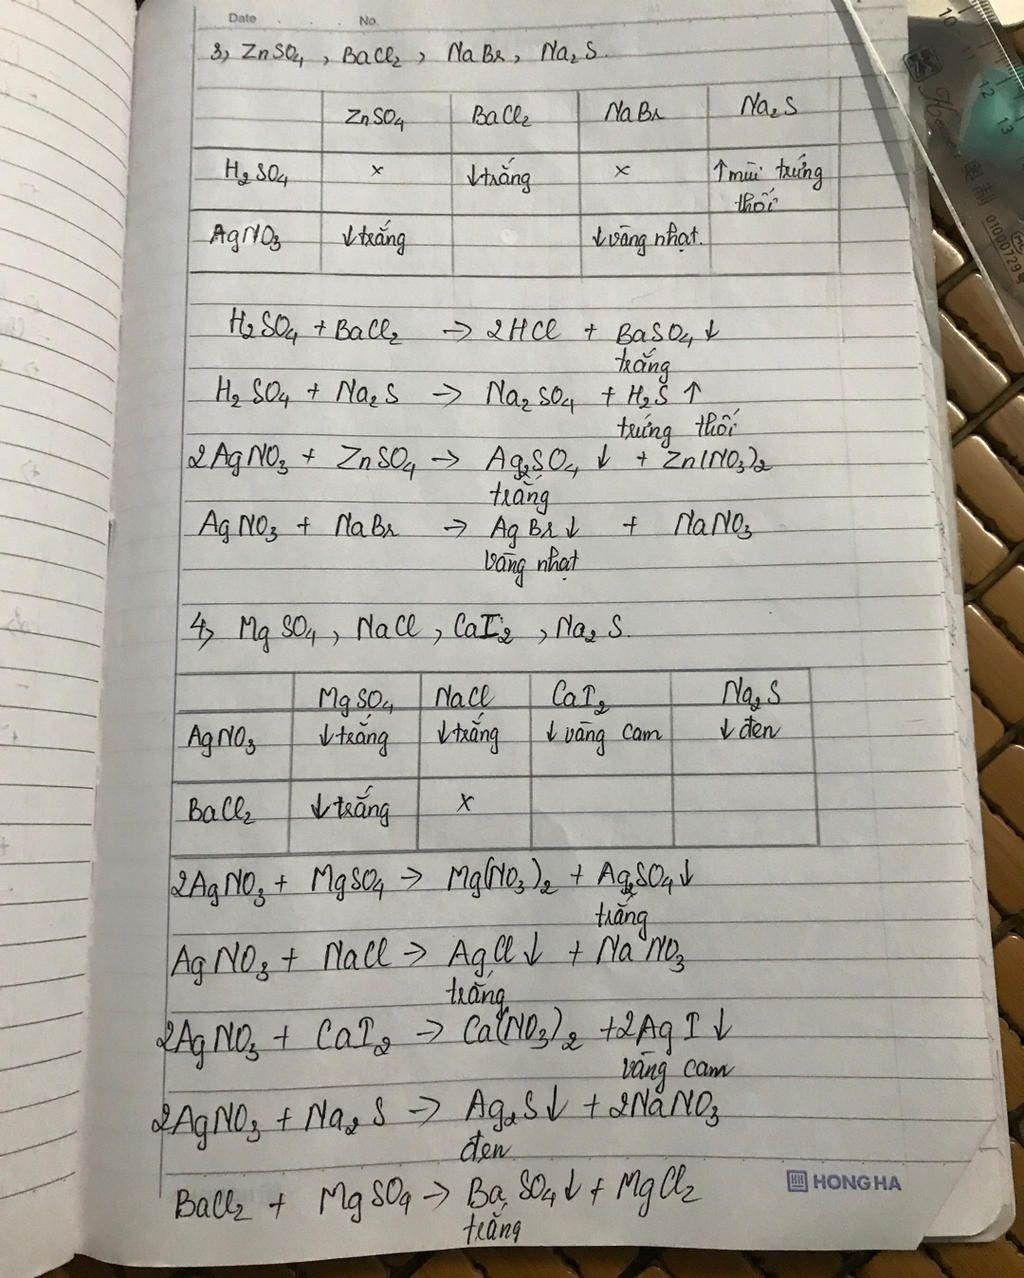 Date . . No.
3, ZnSO4, BaCl2, NaBr, Na2S.
ZnSO4 BaCl2 NaBr Na2S
H2SO4 x ↓trắng x ↑mùi trứng
thối
AgNO3 ↓trắng ↓vàng nhạt.
H2SO4 + BaCl2 → 2HCl + BaSO4↓
trắng
H2SO4 + Na2S → Na2SO4 + H2S ↑
trứng thối
2AgNO3 + ZnSO4 → Ag2SO4 ↓ + Zn(NO3)2
trắng
AgNO3 + NaBr → AgBr↓ + NaNO3
vàng nhạt
4, MgSO4, NaCl, CaI2, Na2S.
MgSO4 NaCl CaI2 Na2S
AgNO3 ↓trắng ↓trắng ↓vàng cam ↓đen
BaCl2 ↓trắng x
2AgNO3 + MgSO4 → Mg(NO3)2 + Ag2SO4↓
trắng
AgNO3 + NaCl → AgCl↓ + NaNO3
trắng
2AgNO3 + CaI2 → Ca(NO3)2 + 2AgI↓
vàng cam
2AgNO3 + Na2S → Ag2S↓ + 2NaNO3
đen
BaCl2 + MgSO4 → BaSO4↓ + MgCl2
trắng
HONG HA
10
11
12
13
01000729